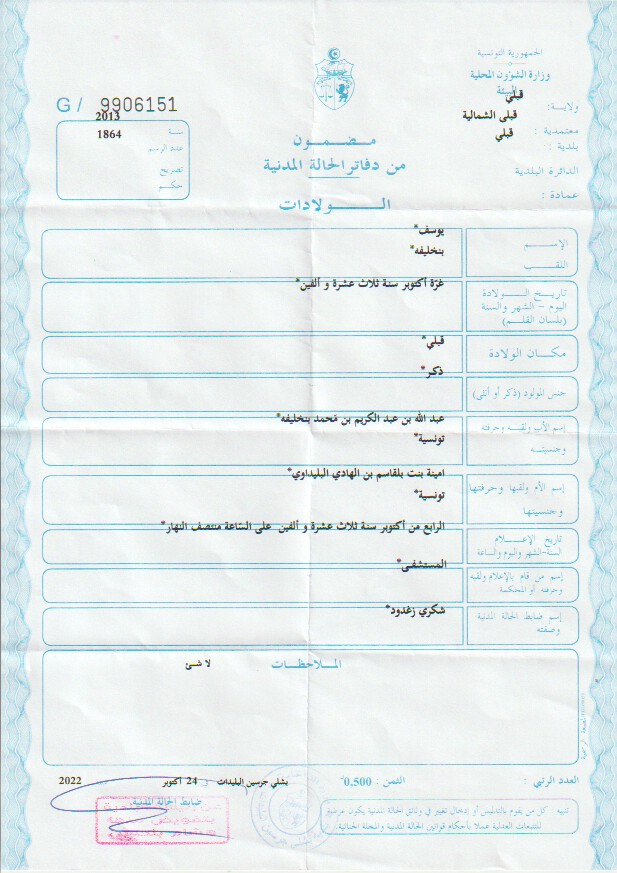 الجمهورية التونسية
وزارة الشؤون المحلية
والبيئة
ولاية: قبلي
معتمدية: قبلي الشمالية
بلدية: قبلي
الدائرة البلدية
عمادة:
G / 9906151
سنة 2013
عدد الرسم 1864
تصريح
حكم
مضمون
من دفاتر الحالة المدنية
الولادات
الإسم يوسف*
اللقب بنخليفه*
تاريخ الولادة
اليوم - الشهر والسنة
(بلسان القلم)
غرّة أكتوبر سنة ثلاث عشرة و ألفين*
مكان الولادة قبلي*
جنس المولود (ذكر أو أنثى) ذكر*
إسم الأب ولقبه وحرفته
وجنسيته
عبد الله بن عبد الكريم بن محمد بنخليفه*
تونسية*
إسم الأم ولقبها وحرفتها
وجنسيتها
امينة بنت بلقاسم بن الهادي البليداوي*
تونسية*
تاريخ الإعلام
السنة-الشهر واليوم والساعة
الرابع من أكتوبر سنة ثلاث عشرة و ألفين على الساعة منتصف النهار*
إسم من قام بالإعلام ولقبه
وحرفته أو المحكمة
المستشفى*
إسم ضابط الحالة المدنية
وصفته
شكري زغدود*
الملاحظات
لا شئ
العدد الرتبي:
الثمن: 0,500د
بشلي جرسين البليدات في 24 أكتوبر 2022
ضابط الحالة المدنية,
تنبيه كل من يقوم بالتدليس أو إدخال تغيير في وثائق الحالة المدنية يكون عرضة
للتتبعات العدلية عملا بأحكام قوانين الحالة المدنية والمجلة الجنائية.